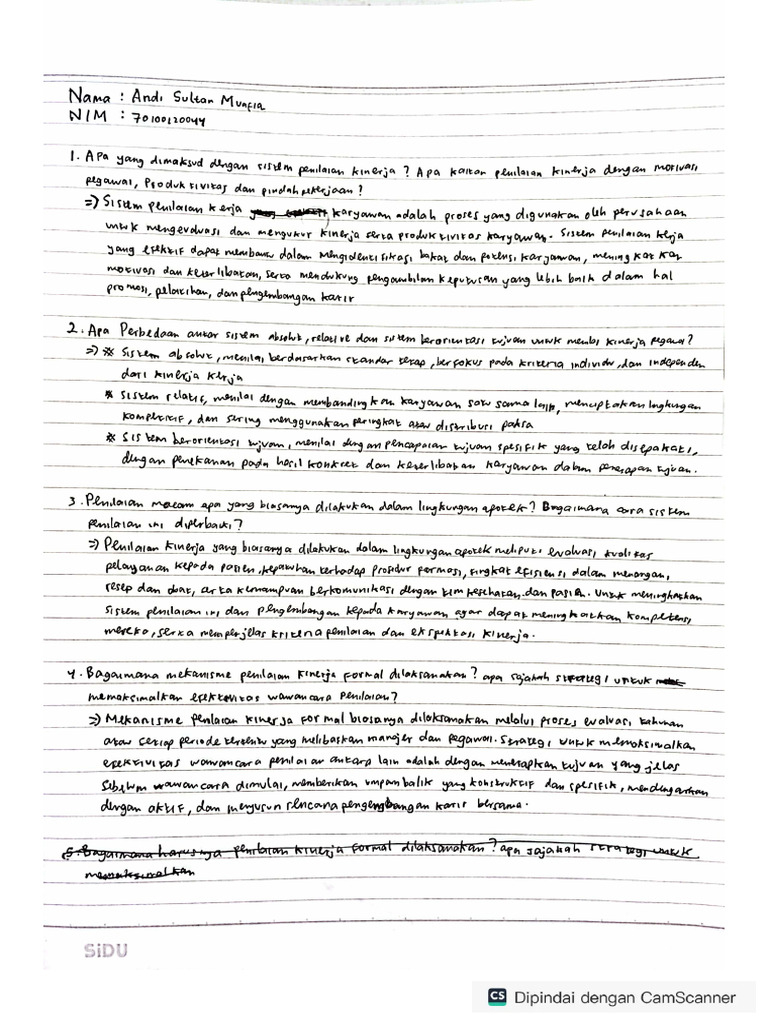 Nama : Andi Sultan Munfia
NIM : 70100120044
1. Apa yang dimaksud dengan sistem penilaian kinerja ? Apa kaitan penilaian kinerja dengan motivasi
pegawai, Produktivitas dan pindah pekerjaan ?
=) Sistem penilaian kerja karyawan adalah proses yang digunakan oleh perusahaan
untuk mengevaluasi dan mengukur kinerja serta produktivitas karyawan. Sistem penilaian kerja
yang efektif dapat membantu dalam mengidentifikasi bakat dan potensi karyawan, meningkatkan
motivasi dan keterlibatan, serta mendukung pengambilan keputusan yang lebih baik dalam hal
promosi, pelatihan, dan pengembangan karir
2. Apa Perbedaan antar sistem absolut, relative dan sistem berorientasi tujuan untuk menilai kinerja pegawai ?
=) * Sistem absolut, menilai berdasarkan standar tetap, berfokus pada kriteria individu, dan independen
dari kinerja kerja
* Sistem relatif, menilai dengan membandingkan karyawan satu sama lain, menciptakan lingkungan
kompetitif, dan sering menggunakan peringkat atau distribusi paksa
* Sistem berorientasi tujuan, menilai dengan pencapaian tujuan spesifik yang telah disepakati,
dengan penekanan pada hasil konkret dan keterlibatan karyawan dalam penetapan tujuan.
3. Penilaian macam apa yang biasanya dilakukan dalam lingkungan apotek ? Bagaimana cara sistem
penilaian ini diperbaiki ?
=) Penilaian kinerja yang biasanya dilakukan dalam lingkungan apotek meliputi evaluasi kualitas
pelayanan kepada pasien, kepatuhan terhadap prosedur farmasi, tingkat efisiensi dalam menangani
resep dan obat, serta kemampuan berkomunikasi dengan tim kesehatan dan pasien. Untuk meningkatkan
sistem penilaian ini dan pengembangan kepada karyawan agar dapat meningkatkan kompetensi
mereka, serta memperjelas kriteria penilaian dan ekspektasi kinerja.
4. Bagaimana mekanisme penilaian kinerja formal dilaksanakan ? apa sajakah strategi untuk
memaksimalkan efektivitas wawancara penilaian ?
=) Mekanisme penilaian kinerja formal biasanya dilaksanakan melalui proses evaluasi tahunan
atau setiap periode tertentu yang melibatkan manajer dan pegawai. Strategi untuk memaksimalkan
efektivitas wawancara penilaian antara lain adalah dengan menetapkan tujuan yang jelas
sebelum wawancara dimulai, memberikan umpan balik yang konstruktif dan spesifik, mendengarkan
dengan aktif, dan menyusun rencana pengembangan karir bersama.
5. Bagaimana harusnya penilaian kinerja formal dilaksanakan ? apa sajakah strategi untuk
memaksimalkan
SiDU
CS Dipindai dengan CamScanner